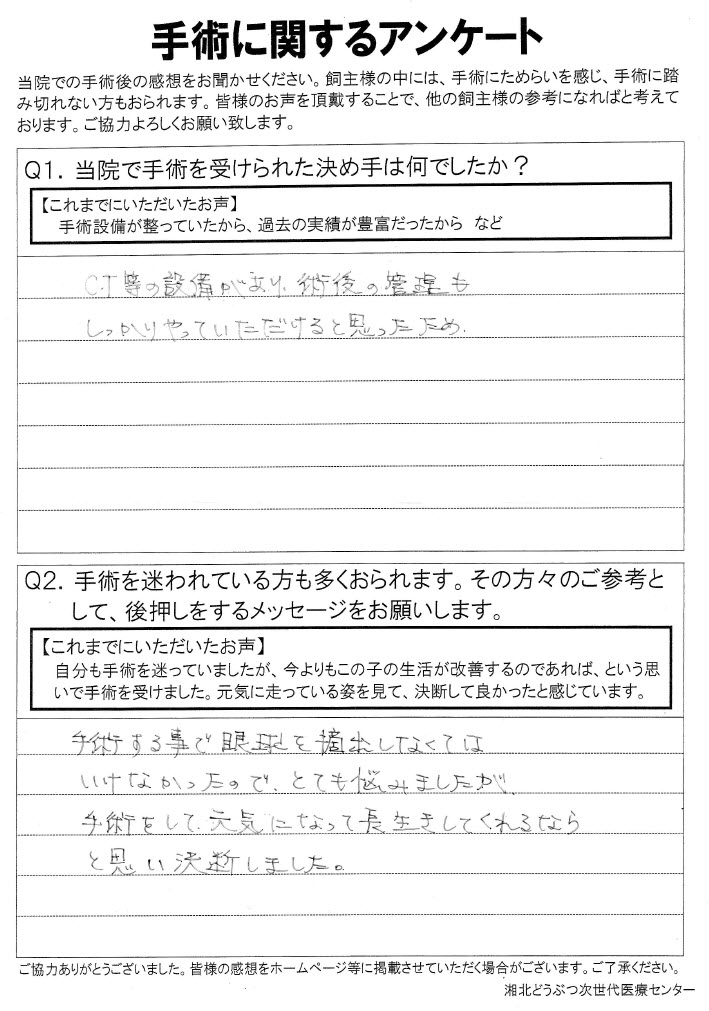 手術に関するアンケート
当院での手術後の感想をお聞かせください。飼主様の中には、手術にためらいを感じ、手術に踏
み切れない方もおられます。皆様のお声を頂戴することで、他の飼主様の参考になればと考えて
おります。ご協力よろしくお願い致します。
Q1. 当院で手術を受けられた決め手は何でしたか？
【これまでにいただいたお声】
手術設備が整っていたから、過去の実績が豊富だったから など
C.T等の設備があり、術後の管理も
しっかりやっていただけると思ったため.
Q2. 手術を迷われている方も多くおられます。その方々のご参考と
して、後押しをするメッセージをお願いします。
【これまでにいただいたお声】
自分も手術を迷っていましたが、今よりもこの子の生活が改善するのであれば、という思
いで手術を受けました。元気に走っている姿を見て、決断して良かったと感じています。
手術する事で眼球を摘出しなくては
いけなかったので、とても悩みましたが、
手術をして、元気になって長生きしてくれるなら
と思い決断しました。
ご協力ありがとうございました。皆様の感想をホームページ等に掲載させていただく場合がございます。ご了承ください。
湘北どうぶつ次世代医療センター